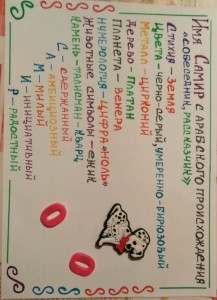 Имя Самир с арабского происхождения
«собеседник, рассказчик»
Стихия - Земля
Цвета - черно-серый, умеренно-бирюзовый
Металл - цирконий
Дерево - платан
Планета - Венера
Нумерология - «цифра ноль»
Животные символы - ежик
Камень-талисман - кварц
С - сдержанный
А - амбициозный
М - милый
И - инициативный
Р - радостный